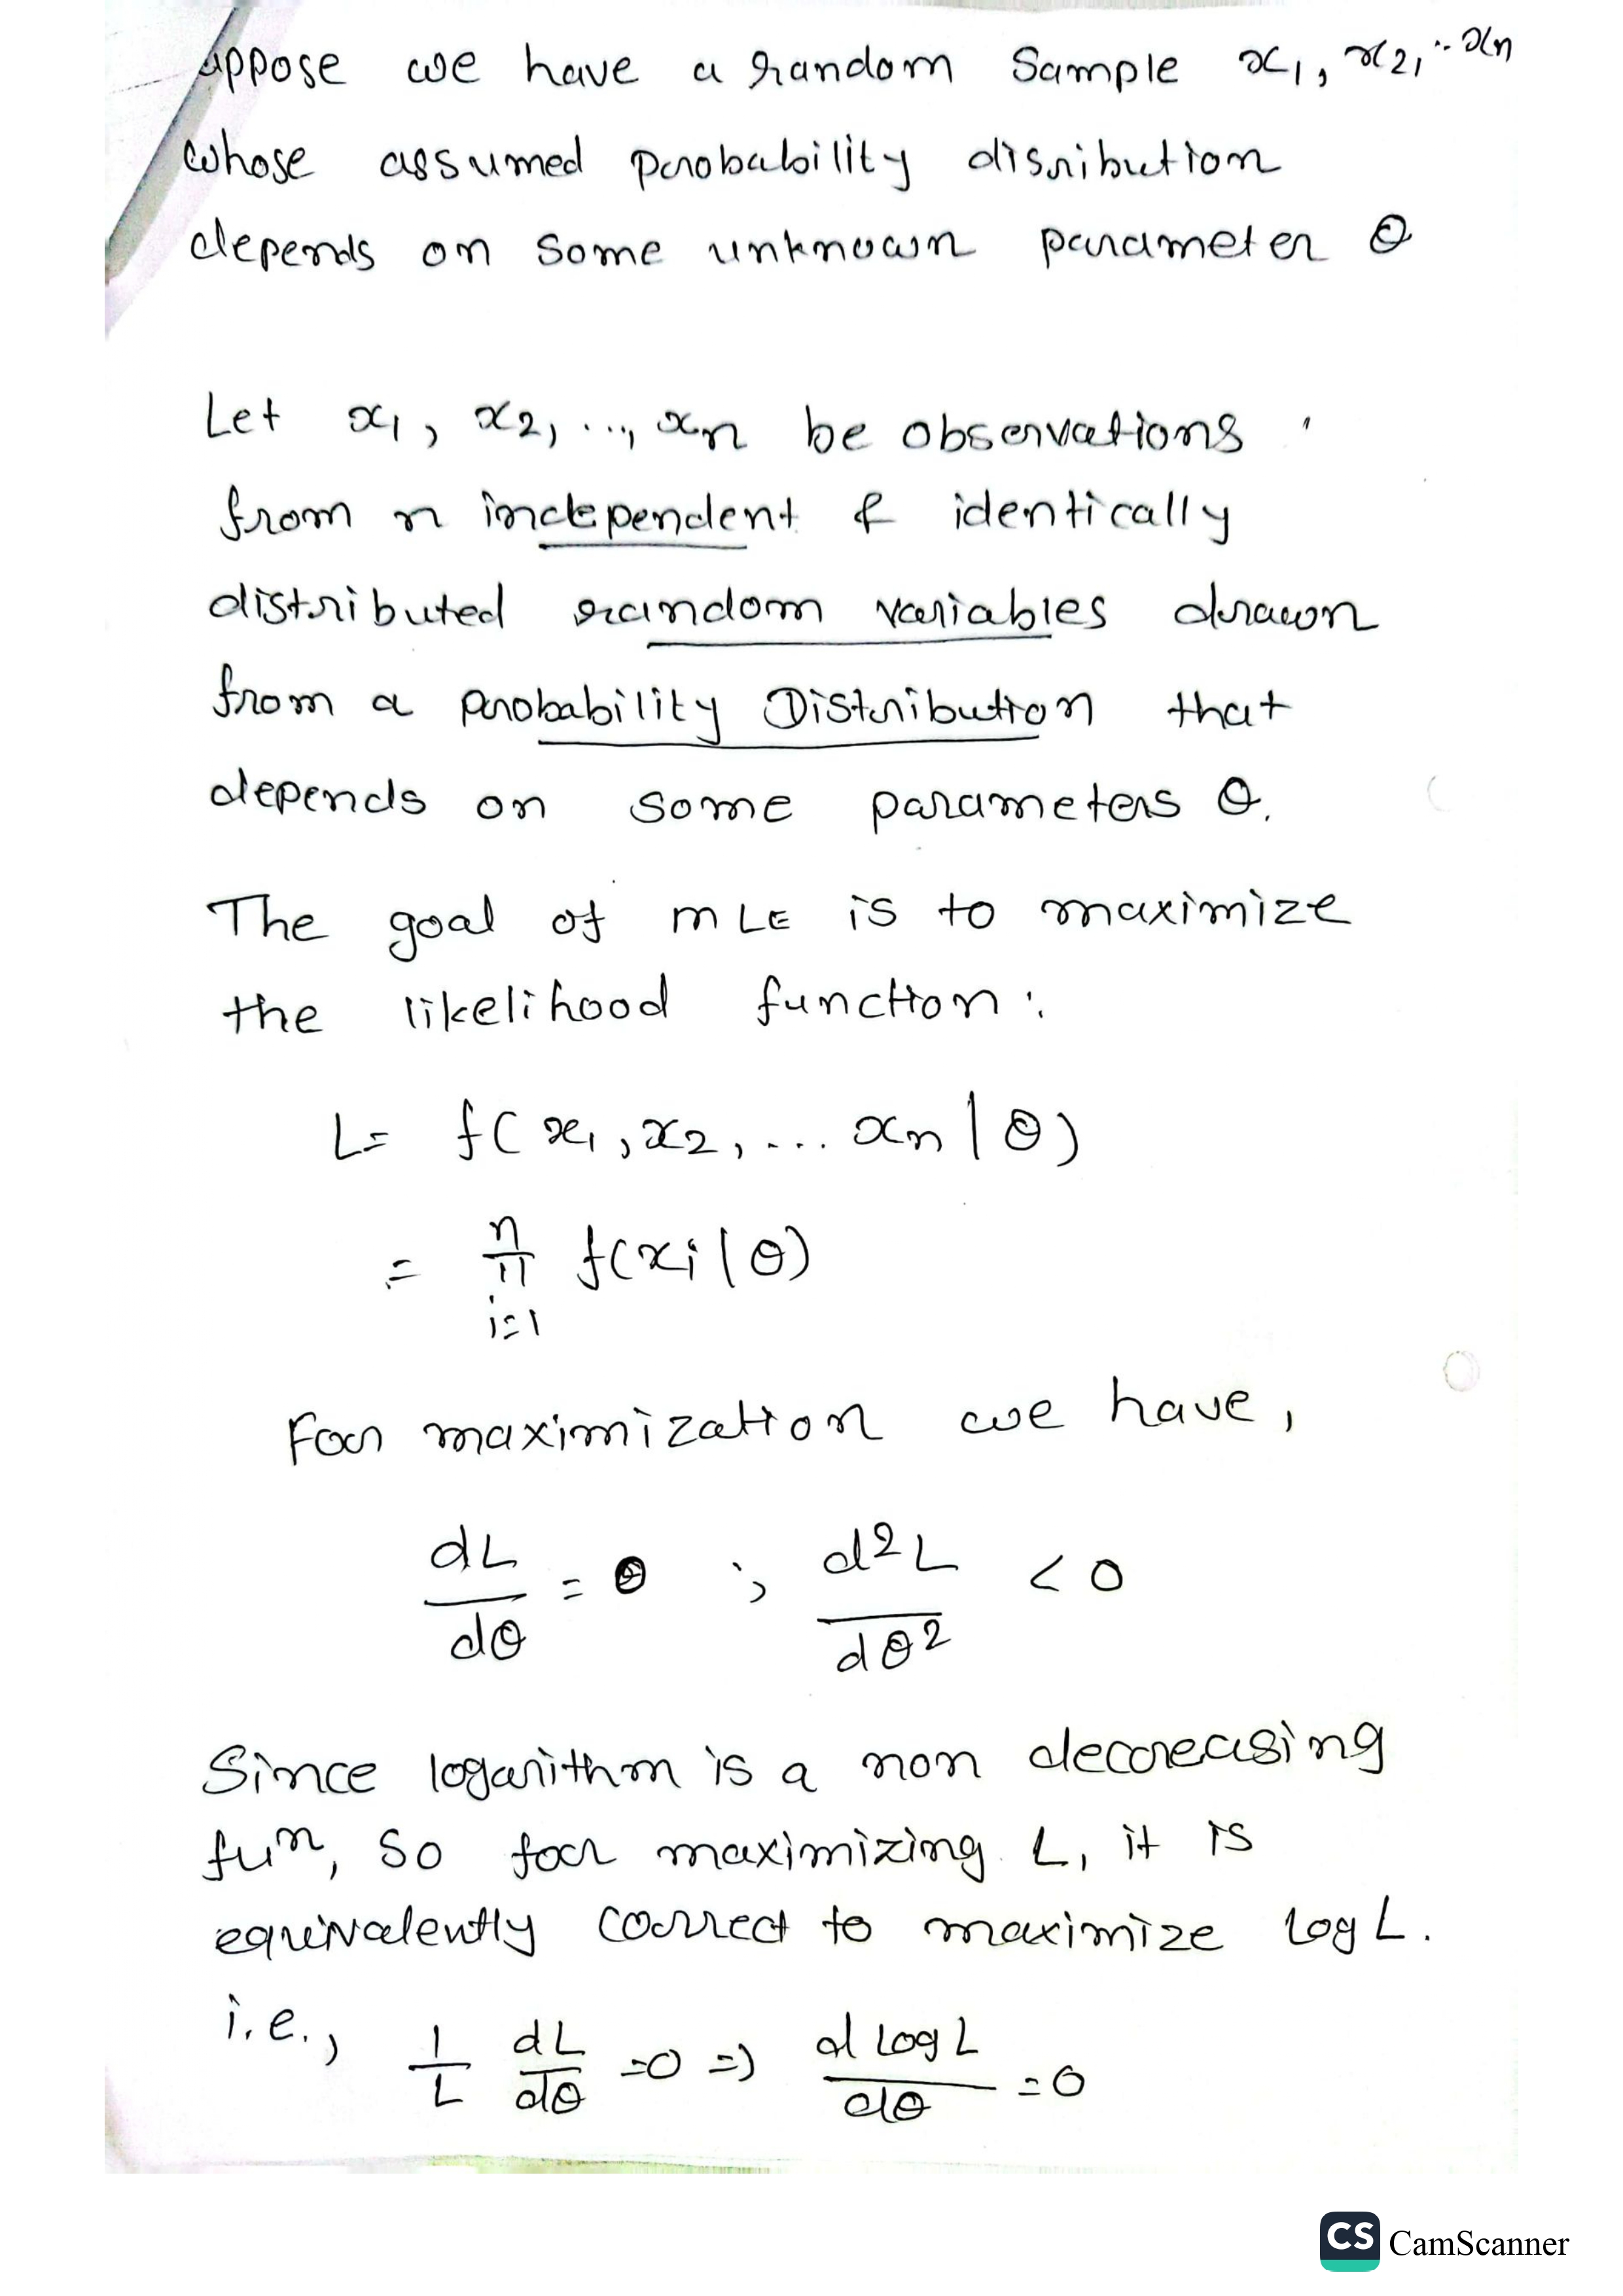 uppose we have a random Sample x₁, x₂, ... xₙ
whose assumed probability disribution
depends on some unknown parameter θ
Let x₁, x₂, ..., xₙ be observations
from n independent & identically
distributed random variables drawn
from a probability Distribution that
depends on some parameters θ.
The goal of MLE is to maximize
the likelihood function:
L = f(x₁, x₂, .... xₙ | θ)
= n π i=1 f(xi | θ)
For maximization we have,
dL/dθ = 0 ; d²L/dθ² < 0
Since logarithm is a non decoreasing
fuⁿ, so for maximizing L, it is
equivalently correct to maximize log L.
i.e., 1/L dL/dθ =0 => d log L/dθ = 0
CS CamScanner